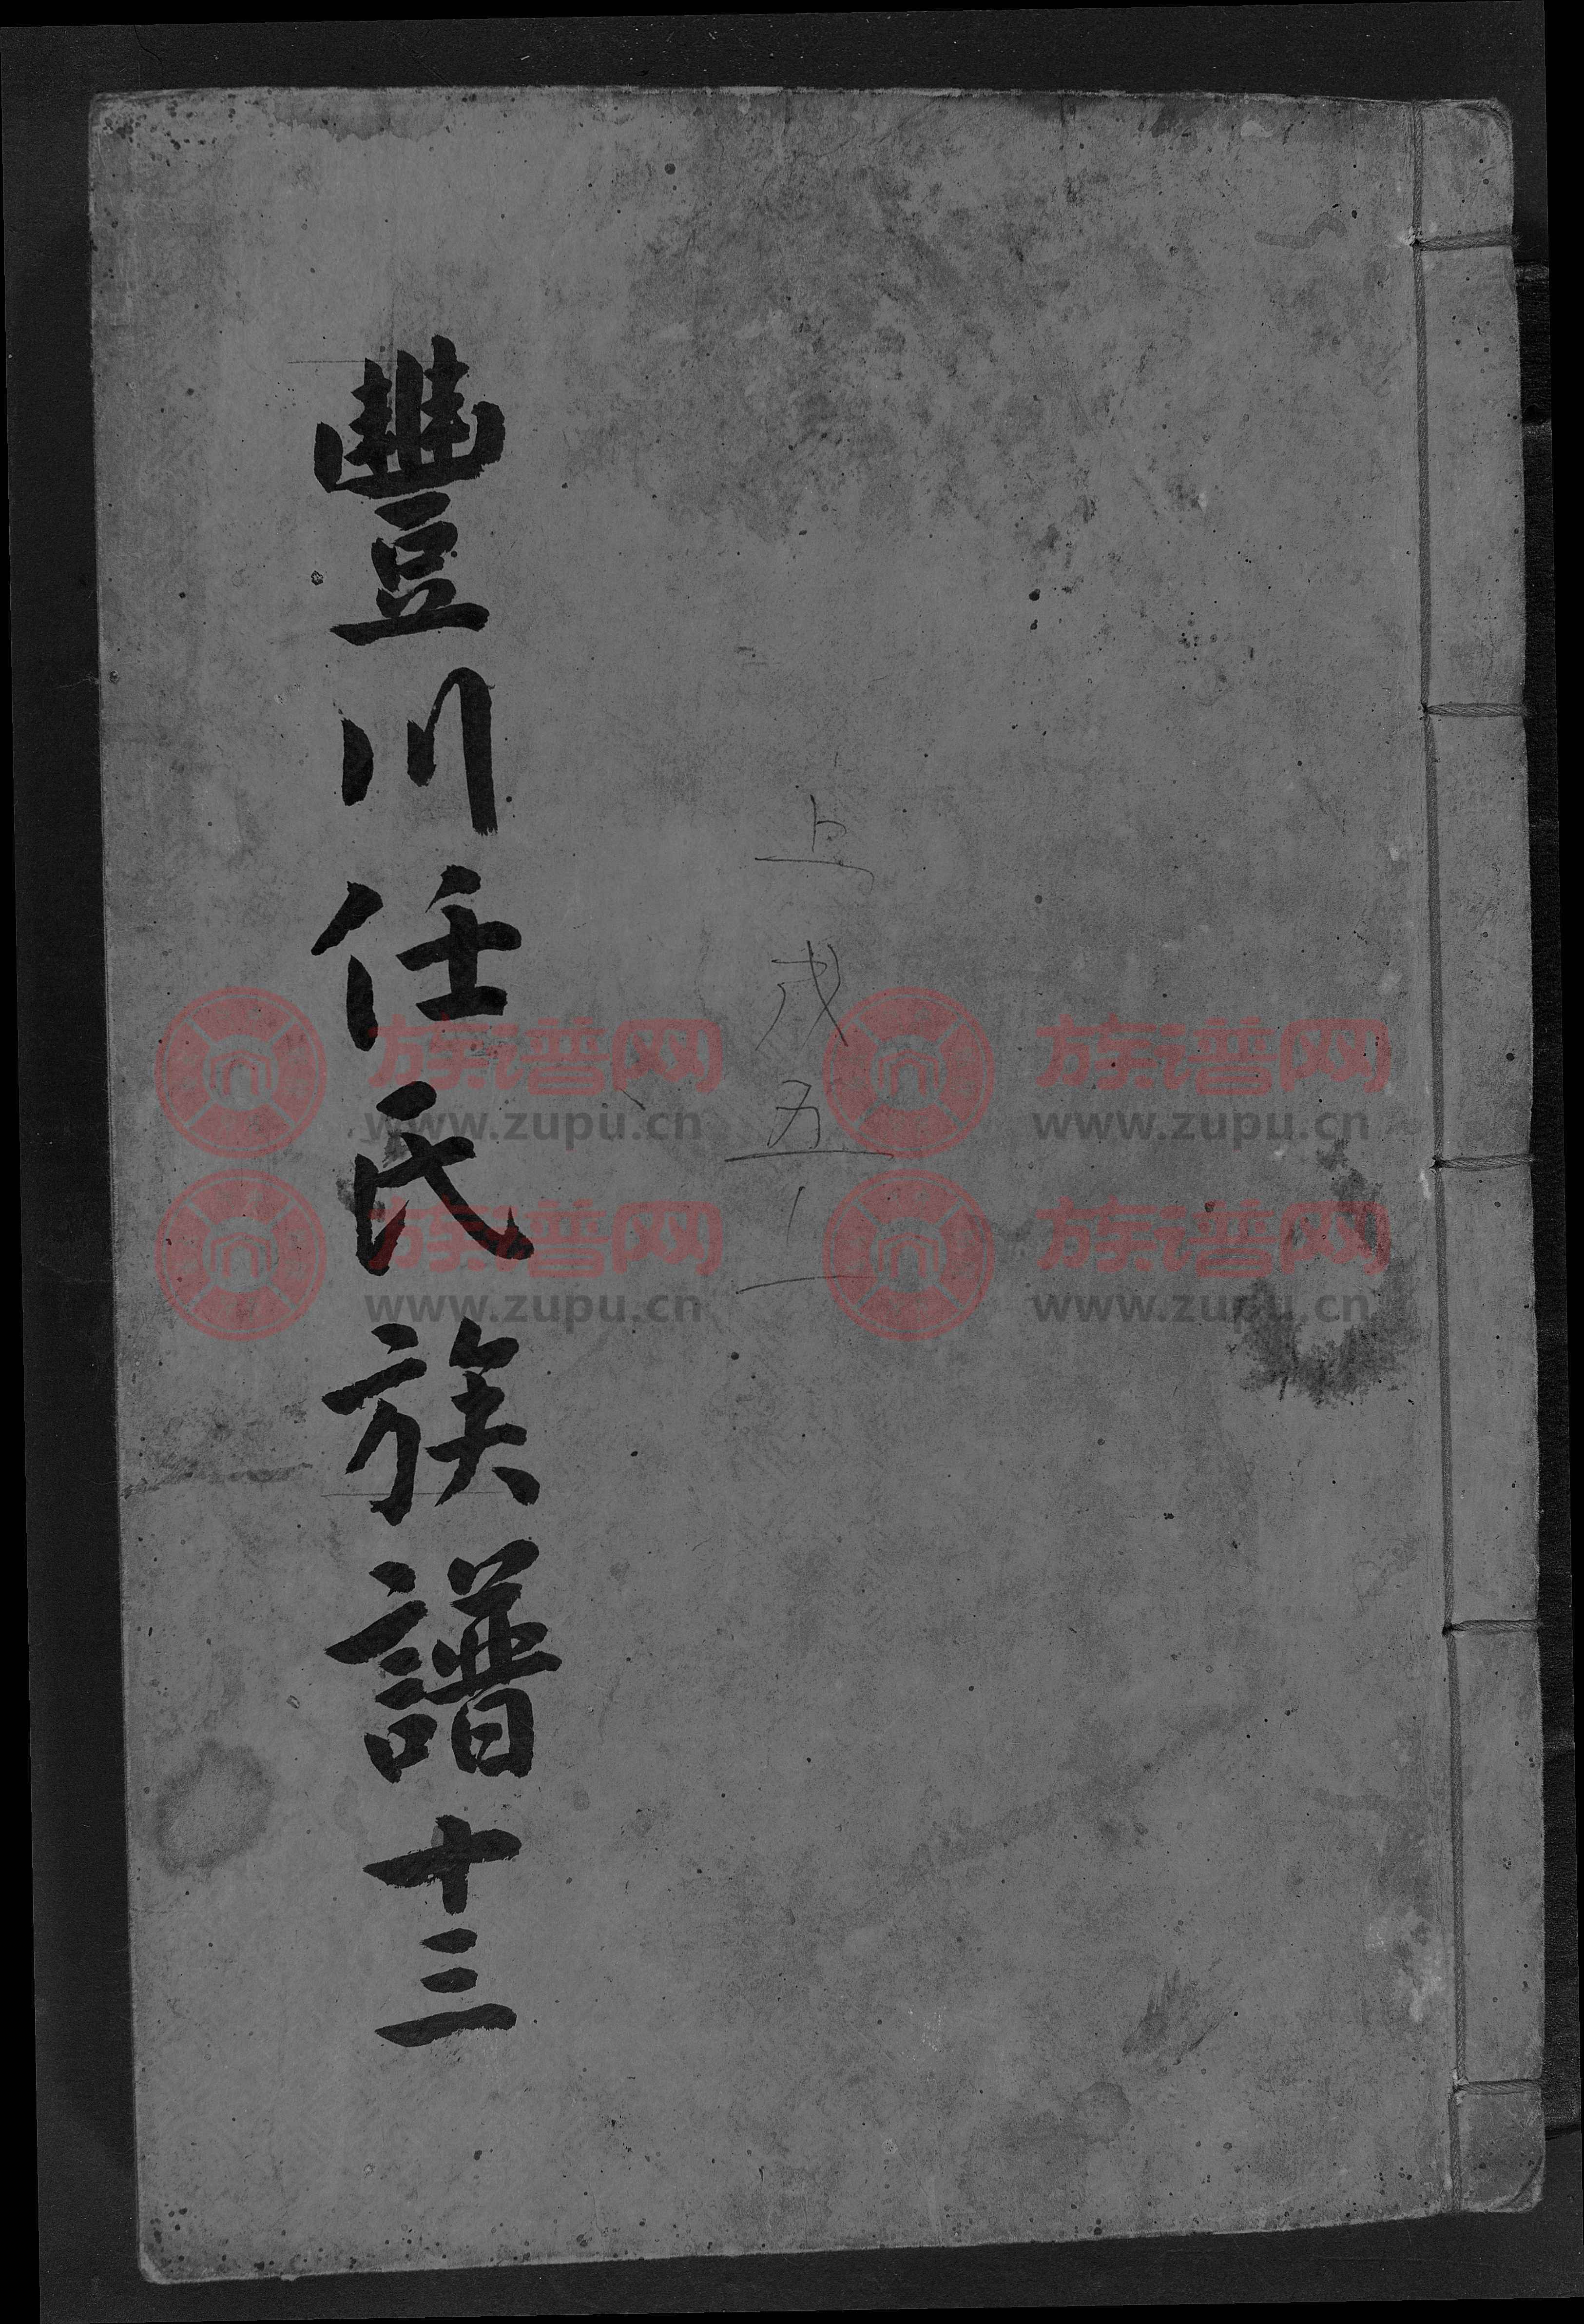 豐川任氏族譜十三
族谱网
www.zupu.cn
族谱网
www.zupu.cn
族谱网
www.zupu.cn
族谱网
www.zupu.cn